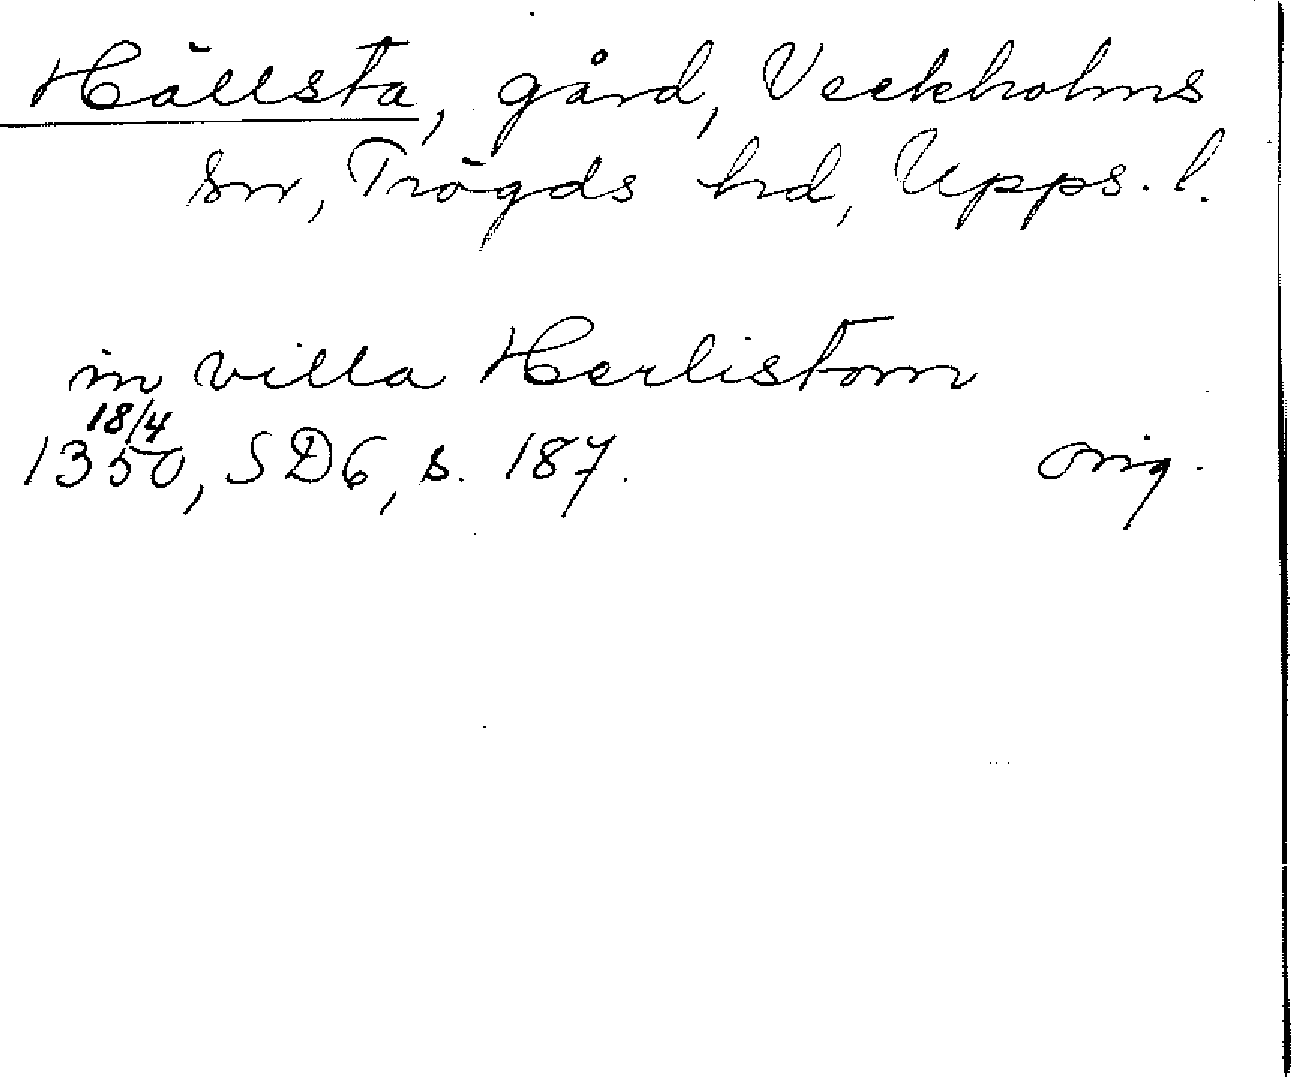 Hällsta, gård, Veckholms
sn, Trögds hd, Upps. l.
in villa Herlistom
18/4
1350, SD6, s. 187.
orig.